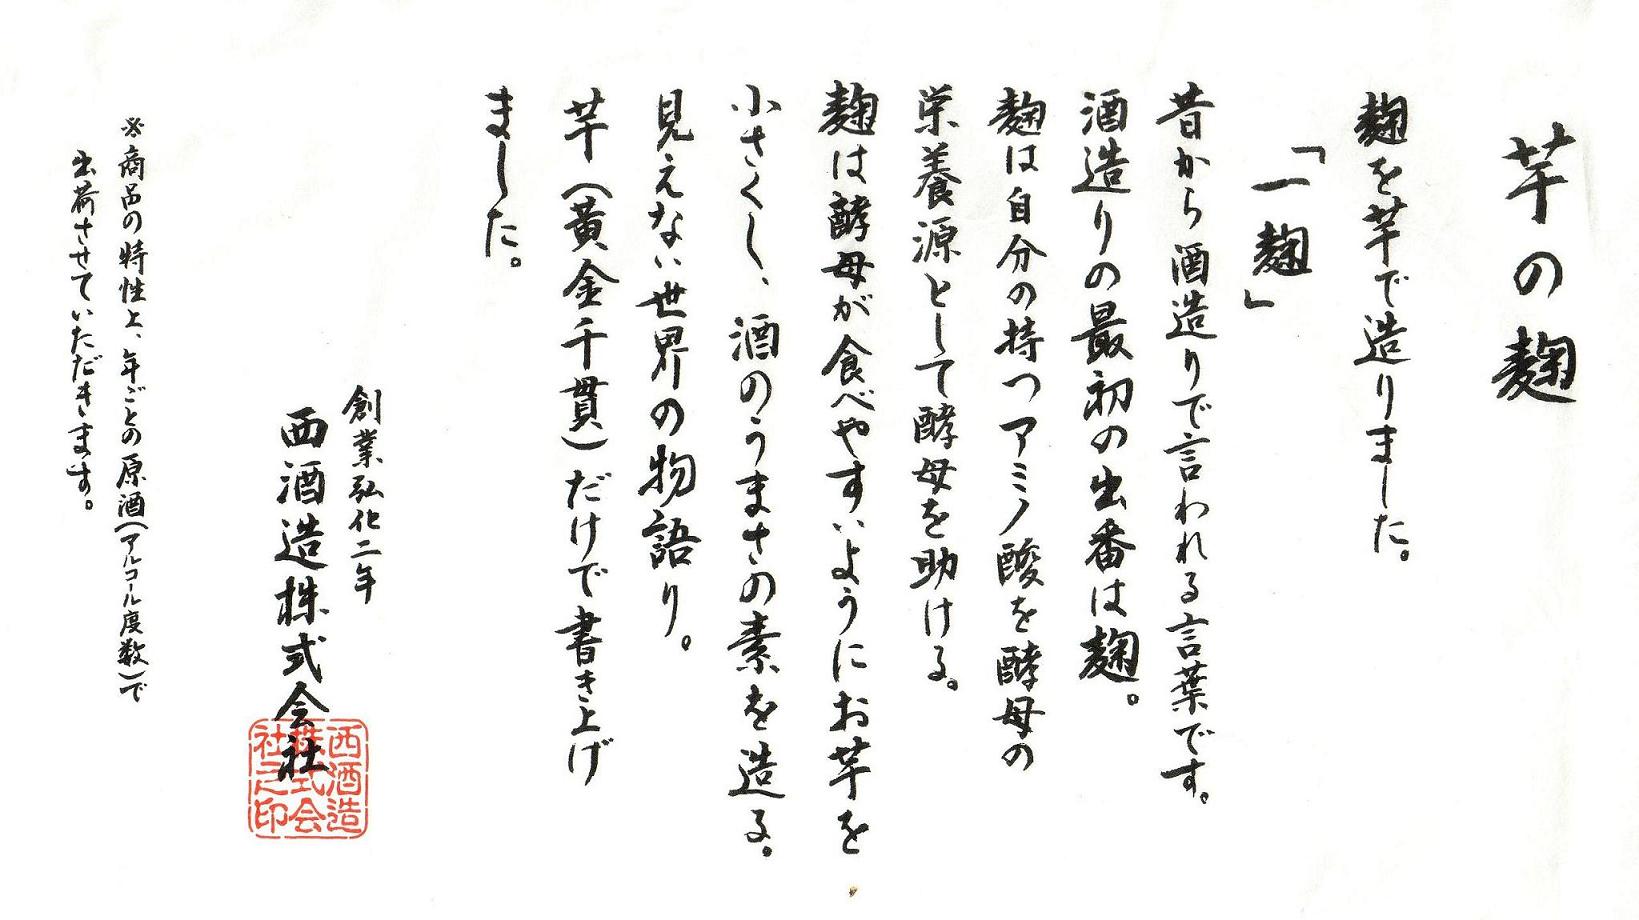 芋の麹
麹を芋で造りました。
「一麹」
昔から酒造りで言われる言葉です。
酒造りの最初の出番は麹。
麹は自分の持つアミノ酸を酵母の
栄養源として酵母を助ける。
麹は酵母が食べやすいようにお芋を
小さくし、酒のうまさの素を造る。
見えない世界の物語り。
芋（黄金千貫）だけで書き上げ
ました。
創業弘化二年
西酒造株式会社
西酒造
株式会
社之印
※商品の特性上、年ごとの原酒（アルコール度数）で
出荷させていただきます。